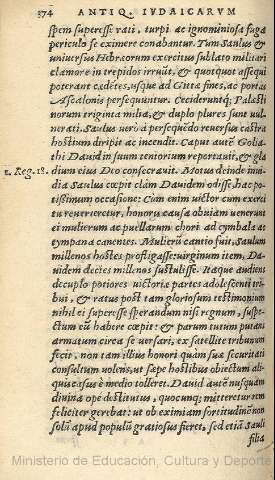 374 ANTIQ. IVDAICARVM
spem superesse rati, turpi ac ignominiosa fuga
periculo se eximere conabantur. Tum Saulus &
universus Hebræorum exercitus sublato militari
clamore in trepidos irruit, & quotquot assequi
poterant cædētes, usque ad Gitta fines, ac portas
Ascalonis persequuntur. Cecideruntq; Palæsti
norum triginta milia, & duplo plures sunt vul
nerati. Saulus verò à persequēdo reversus castra
hostium diripit ac incendit. Caput autē Golia-
thi David in suum tentorium reportavit, & gla
2. Reg. 18. dium eius Deo consecravit. Motus deinde invi
dia Saulus cœpit clàm Davidem odisse hac po-
tissimum occasione: Cum enim victor cum exerci
tu reverteretur, honoris causa obviam venerunt
ei mulierum ac puellarum chori ad cymbala ac
tympana canentes. Mulierū cantio fuit, Saulum
millenos hostes profligasse: virginum item, Da-
videm decies millenos sustulisse. Itaque audiens
decuplo potiores victoriæ partes adolescenti tri-
bui, & ratus post tam gloriosum testimonium
nihil ei superesse sperandum nisi regnum, suspe-
ctum eū habere cœpit: & parum tutum putans
armatum circa se versari, ex satellite tribunum
fecit, non tam illius honori quam suæ securitati
consultum volens, ut sæpe hostibus obiectum ali-
quis casus è medio tolleret. David autē nusquam
divina ope destitutus, quocunq; mitteretur rem
feliciter gerebat: ut ob eximiam fortitudinē non
solū apud populū gratiosus fieret, sed etiā Sauli
filia
Ministerio de Educación, Cultura y Deporte